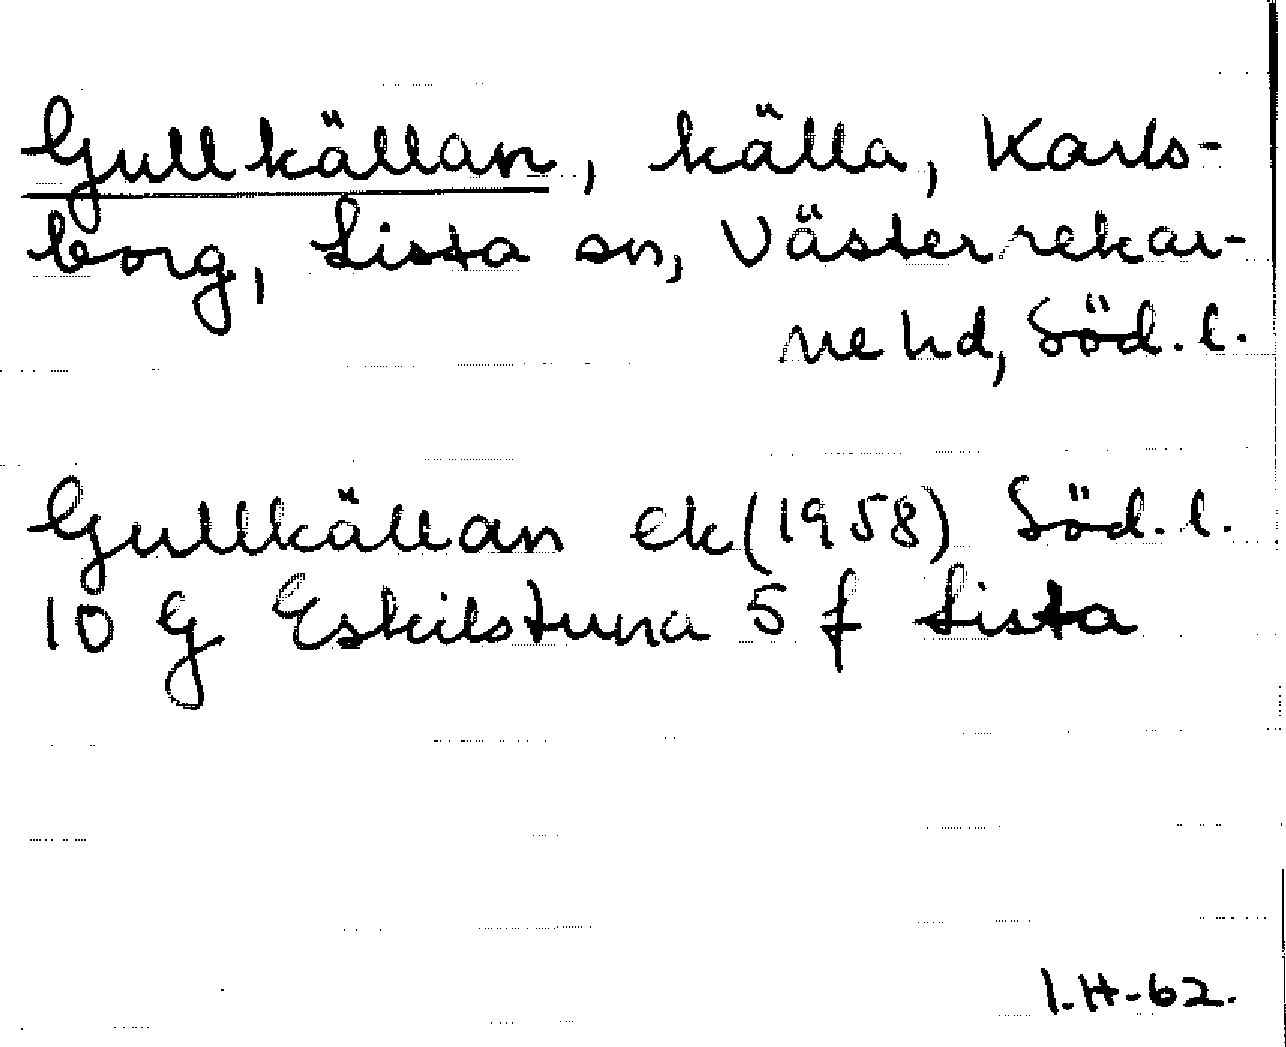 Gullkällan, källa, Karls-
borg, Lista sn, Västerrekar-
ne hd, Söd. l.
Gullkällan ek (1958) Söd. l.
10 G Eskilstuna 5 f Lista
I.H-62.